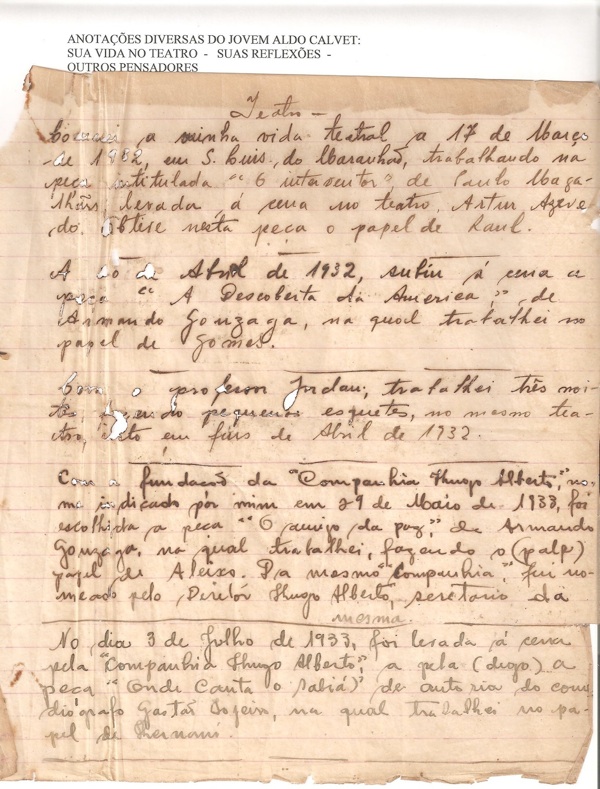 ANOTAÇÕES DIVERSAS DO JOVEM ALDO CALVET:
SUA VIDA NO TEATRO - SUAS REFLEXÕES -
OUTROS PENSADORES
Teatro —
a minha vida teatral a 17 de Março
de 1932, em S. Luis do Maranhão, trabalhando na
peça intitulada "O interventor", de Paulo Maga-
lhães, levada á cena no teatro Artur Azeve
do. Obtive nesta peça o papel de Raul.
A de Abril de 1932, subiu á cena a
peça "A Descoberta da America", de
Armando Gonzaga, na qual trabalhei no
papel de Gomes.
Com o professor Jordau; trabalhei três noi-
tes, fazendo pequenos esquetes, no mesmo tea-
tro, isto em fins de Abril de 1932.
Com a fundacão da "Companhia Thugo Alberto", no-
me indicado pór mim em 29 de Maio de 1933, foi
escolhida a peça "O amigo da paz", de Armando
Gonzaga, na qual trabalhei, fazendo o (palp)
papel de Aleixo. Da mesmo "companhia", fui no-
meado pelo Diretor Thugo Alberto, secretario da
mesma.
No dia 3 de Julho de 1933, foi levada á cena
pela "Companhia Thugo Alberto", a pela (digo) a
peça "Onde Canta o Sabiá" de autoria do com
diógrafo Gastão Tojeiro, na qual trabalhei no pa-
pel de Hernani.